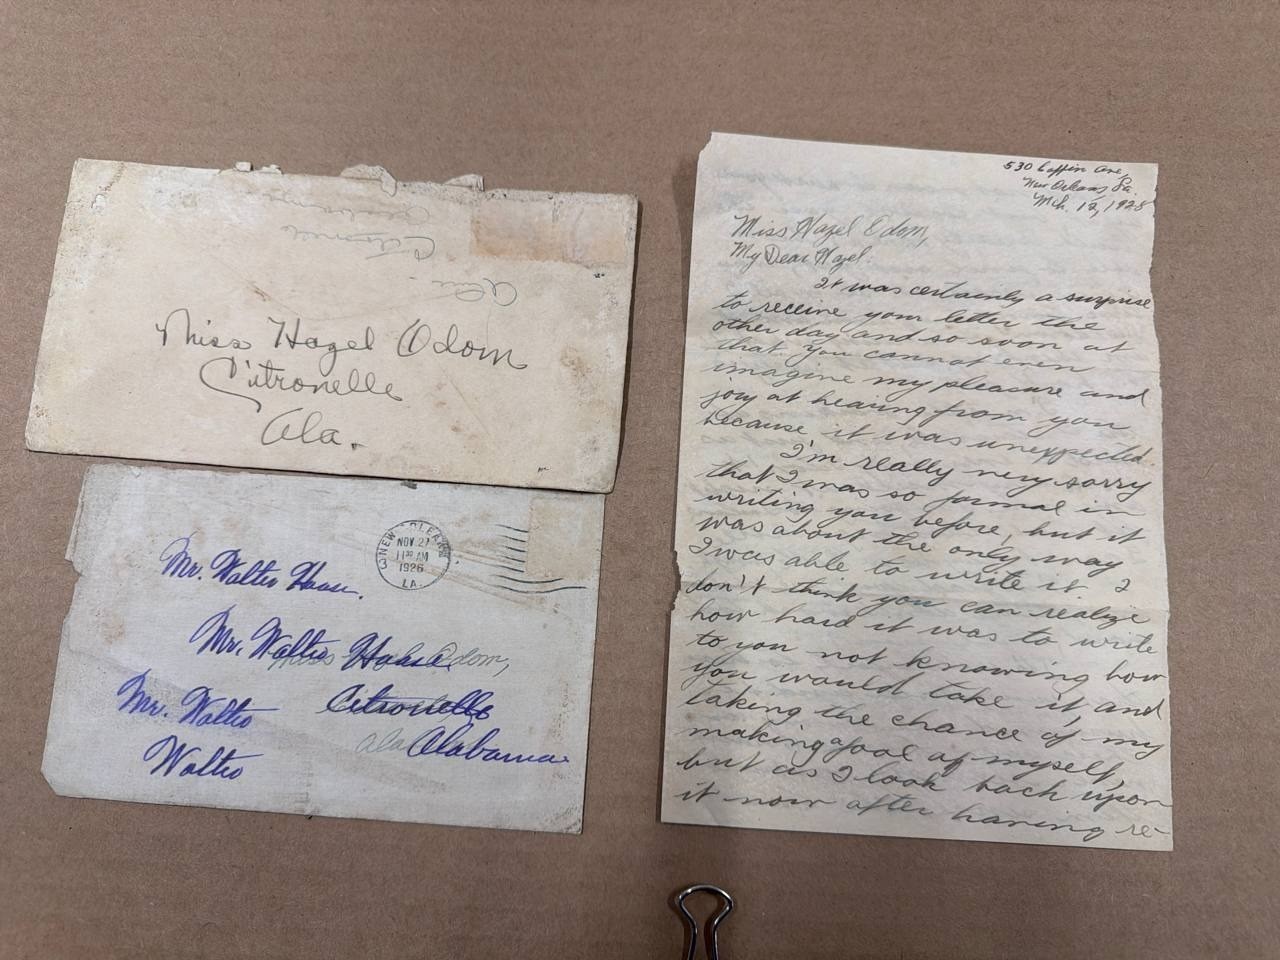 Citronelle
Ala.
Miss Hazel Odom
Citronelle
Ala.
NEW ORLEANS
NOV 27
11 30 AM
1926
LA.
Mr. Walter House.
Mr. Walter House
Odom,
Mr. Walter
Citronelle
Ala Alabama
Walter
530 Coffin Ave,
New Orleans, La.
Mch. 12, 1925
Miss Hazel Odom,
My Dear Hazel:
It was certainly a surprise
to receive your letter the
other day and so soon at
that. You cannot even
imagine my pleasure and
joy at hearing from you
because it was unexpected.
I'm really very sorry
that I was so formal in
writing you before, but it
was about the only way
I was able to write it. I
don't think you can realize
how hard it was to write
to you not knowing how
you would take it and
taking the chance of my
making a fool of myself,
but as I look back upon
it now after having re-